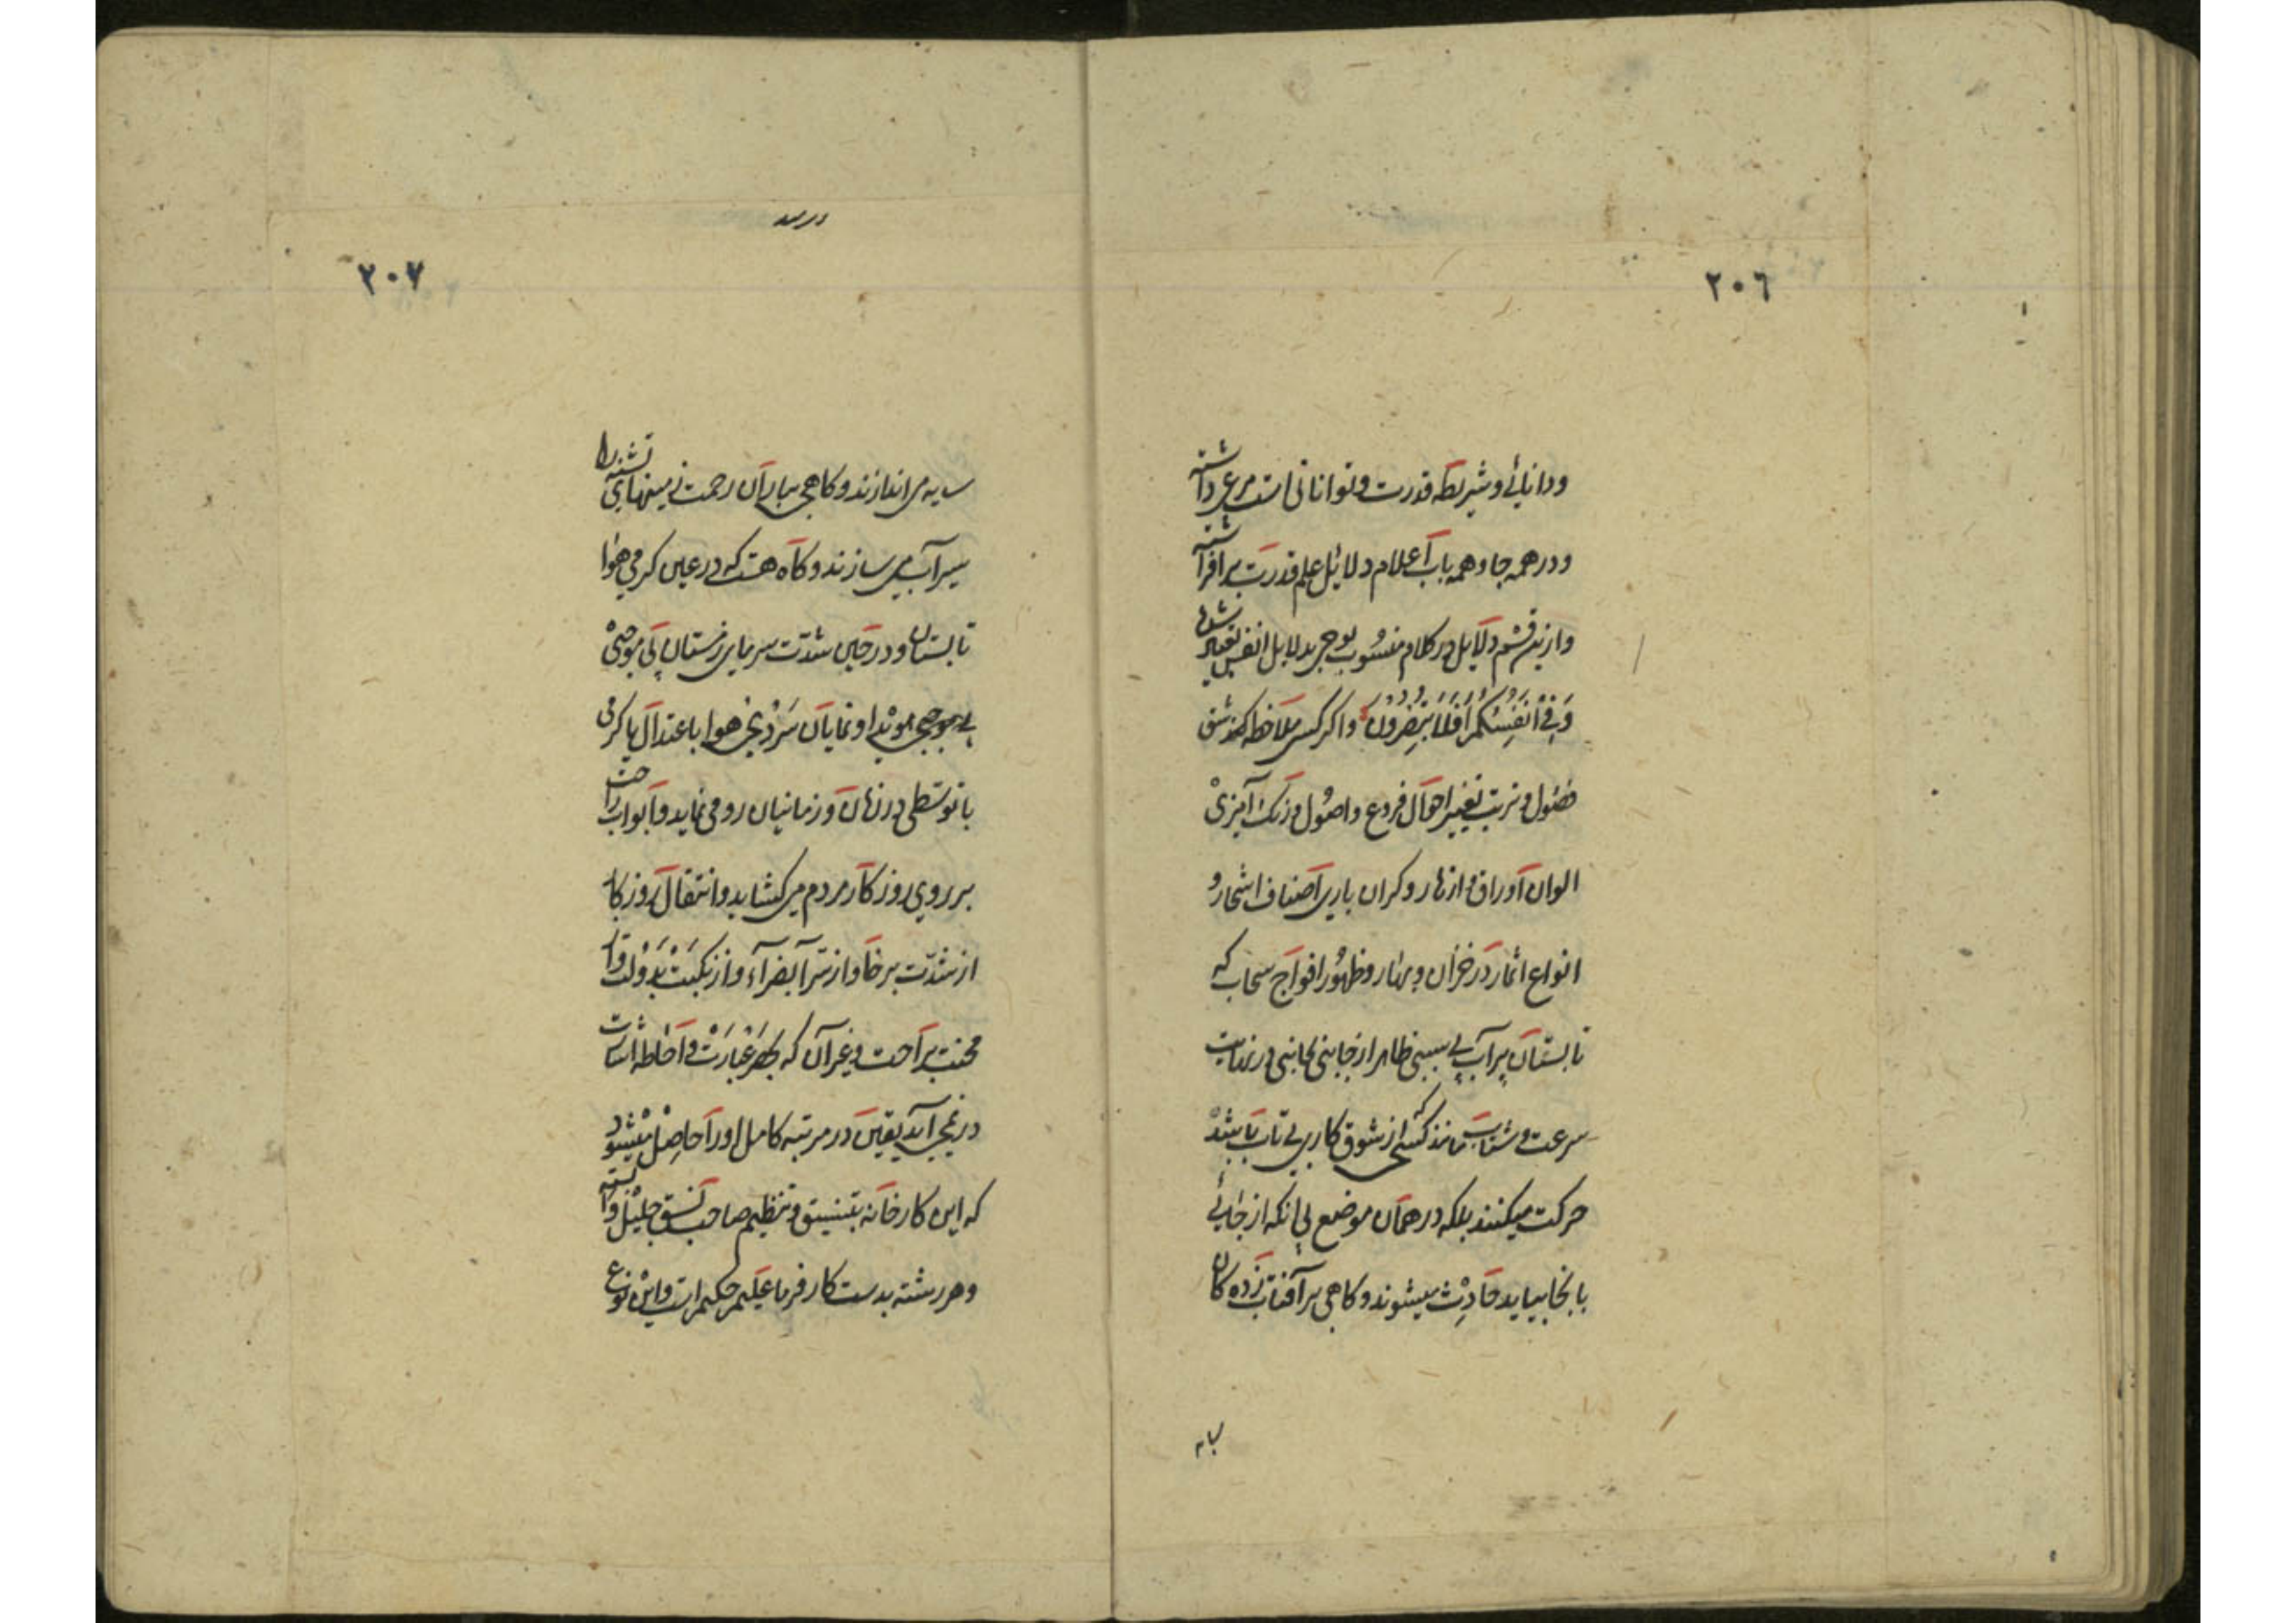 ٢٠٦
ودانائی و شریطه قدرت و توانائی است مرعی داشته
و در همه جا و همه باب اعلام دلائل علم قدرت برافراشته
و ازین قسم دلایل در کلام منسوب بوحی بدلایل انفس تعبیر شده
وَفِي أَنْفُسِكُمْ أَفَلَا تُبْصِرُونَ و اگر کسی ملاحظه کند شئون
فصول و ترتیب تغییر احوال فروع و اصول و رنگ آمیزی
الوان اوراق و ازهار و گران باری اصناف اشجار و
انواع اثمار در خزان و بهار و ظهور افواج سحاب که
تابستان پر آب بی سببی ظاهر از جانبی بجانبی در نهایت
سرعت و شتاب مانند کسی که از شوق کاری بی تاب باشد
حرکت میکنند بلکه در همان موضع بی آنکه از جائی
بانجا بیاید حادث میشوند و کاهی بر آفتاب زده کان
سایه
٢٠٧
سایه می اندازند و کاهی بباران رحمت زمینهای تشنه را
سیرآب می سازند و کاه هست که در عین کرمی هوا
تابستان و در حین شدت سرمای زمستان بی موجبی
هویدا و نمایان سردی هوا باعتدال یا کرمی
با توسطی در زمان و زمانیان رو می نماید و ابواب راحت
بر روی روزکار مردم می کشاید و انتقال روزکار
از شدت برخا و از سرآ بضرآء و از نکبت بدولت و از
محنت براحت و غیر آن که بحصر عبارت و احاطه اشارت
در نمی آید یقین در مرتبه کامل او را حاصل میشود
که این کارخانه بتنسیق و تنظیم صاحب نسق جلیل وابسته
و هر رشته بدست کارفرما علیم حکیم است و این نوع